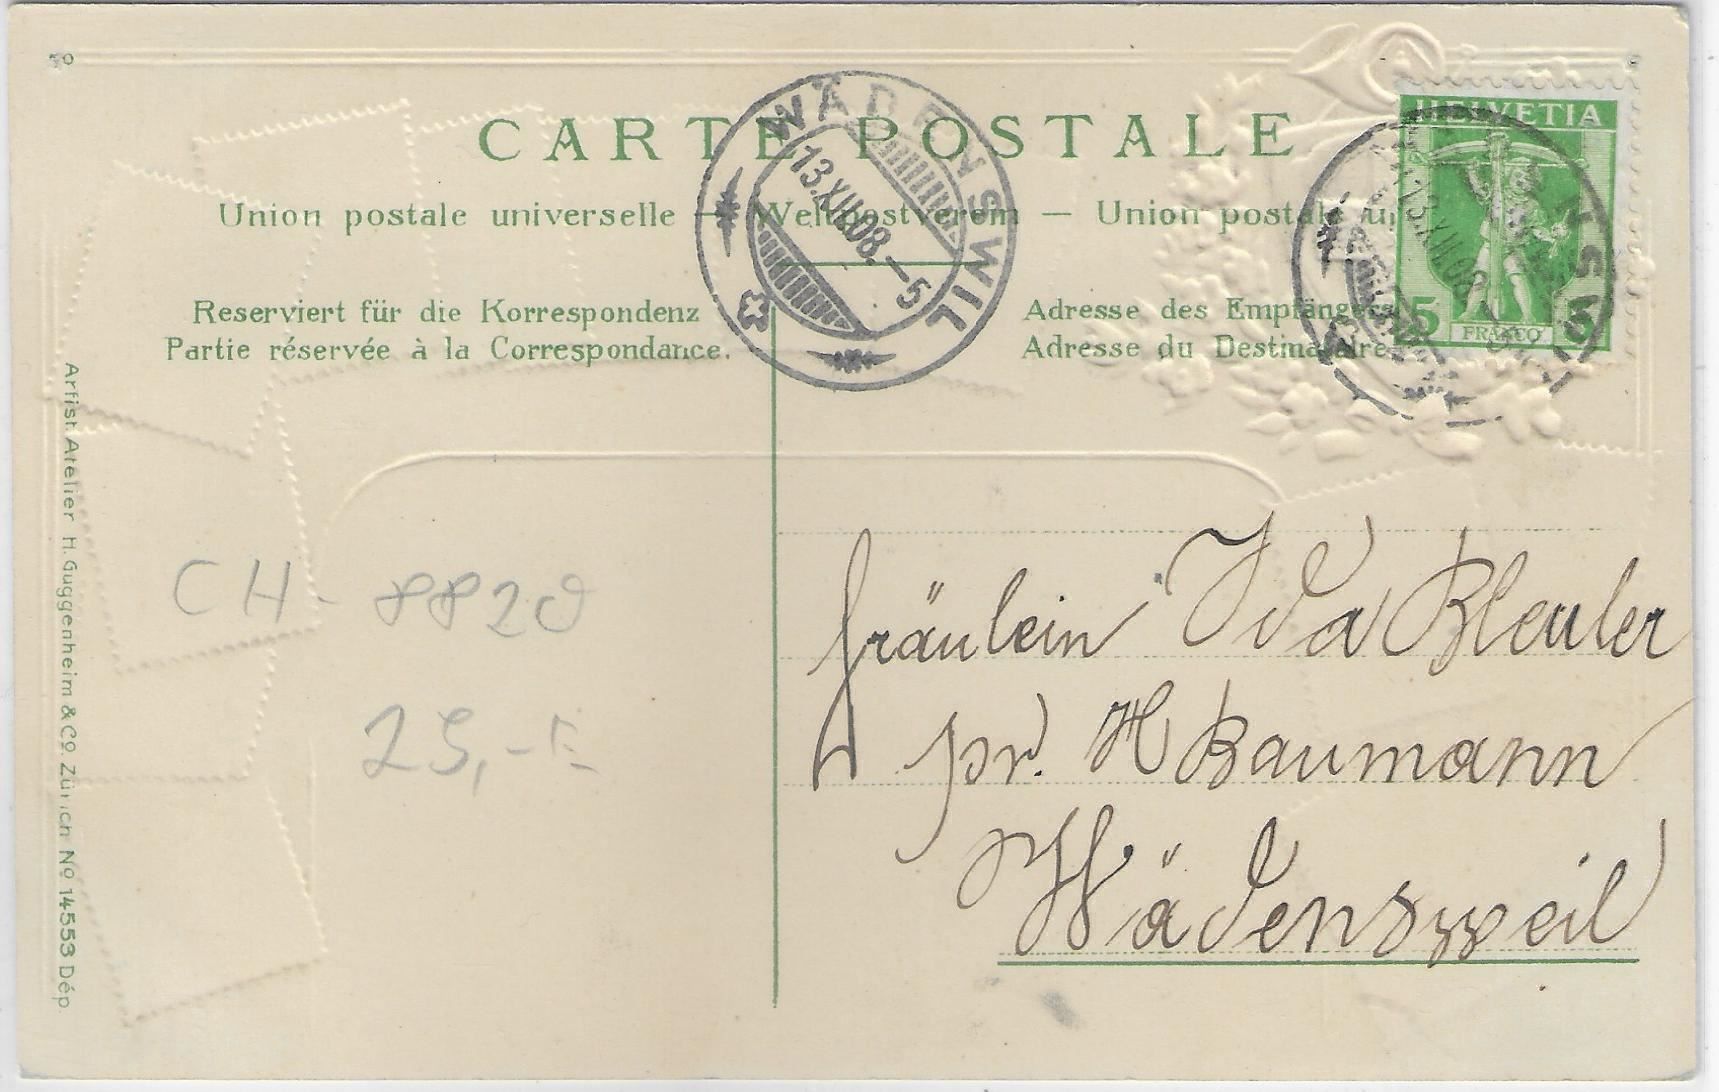 CARTE POSTALE
Union postale universelle — Weltpostverein — Union postale un
WÄDENSWIL
13.XII.08.–5
HELVETIA
5 FRANCO 5
13.XII.08
Reserviert für die Korrespondenz
Partie réservée à la Correspondance.
Adresse des Empfängers
Adresse du Destinataire
Artist. Atelier H. Guggenheim & Co. Zürich No 14553 Dép.
CH-8820
25,-
Fräulein Ida Bleuler
pr. H Baumann
Wädensweil